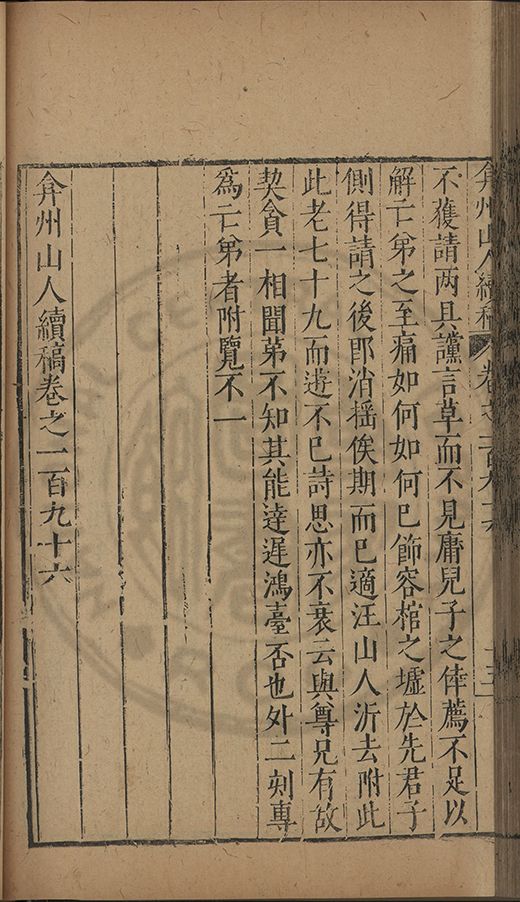 弇州山人續稿 卷之一百九十六 十五
不獲請两具讜言草而不見庸兒子之倖薦不足以
解亡弟之至痛如何如何已飾容棺之墟於先君子
側得請之後卽消搖俟期而已適汪山人沂去附此
此老七十九而遊不已詩思亦不衰云與尊兄有故
契貧一相聞第不知其能達遲鴻臺否也外二刻專
為亡弟者附覽不一
弇州山人續稿卷之一百九十六